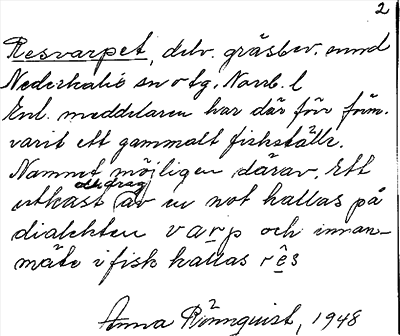 2
Resvarpet, delv. gräsbev. sund
Nederkalix sn o tg, Norrb. l
Enl. meddelaren har där förr
varit ett gammalt fiskställe.
Namnet möjligen därav. Ett
utkast och drag av en not kallas på
dialekten varp och innan-
mäte i fisk kallas rês
Anna Rönnquist, 1948